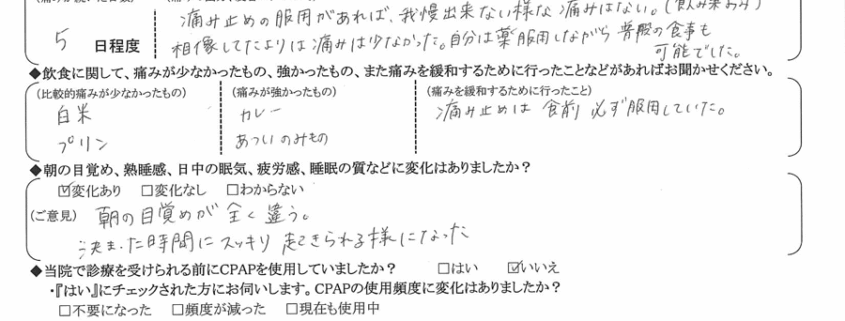 痛み止めの服用があれば、我慢出来ない様な痛みはない。(飲み来おみ)
5 日程度 相像してたよりは痛みは少なかった。自分は薬服用しながら 普段の食事も
可能でした。
◆飲食に関して、痛みが少なかったもの、強かったもの、また痛みを緩和するために行ったことなどがあればお聞かせください。
(比較的痛みが少なかったもの) (痛みが強かったもの) (痛みを緩和するために行ったこと)
白米 カレー 痛み止めは 食前 必ず服用していた。
プリン あついのみもの
◆朝の目覚め、熟睡感、日中の眠気、疲労感、睡眠の質などに変化はありましたか?
☑変化あり □変化なし □わからない
(ご意見) 朝の目覚めが 全く違う。
決まった時間に スッキリ 起きられる様になった
◆当院で診療を受けられる前にCPAPを使用していましたか? □はい ☑いいえ
・『はい』にチェックされた方にお伺いします。CPAPの使用頻度に変化はありましたか?
□不要になった □頻度が減った □現在も使用中